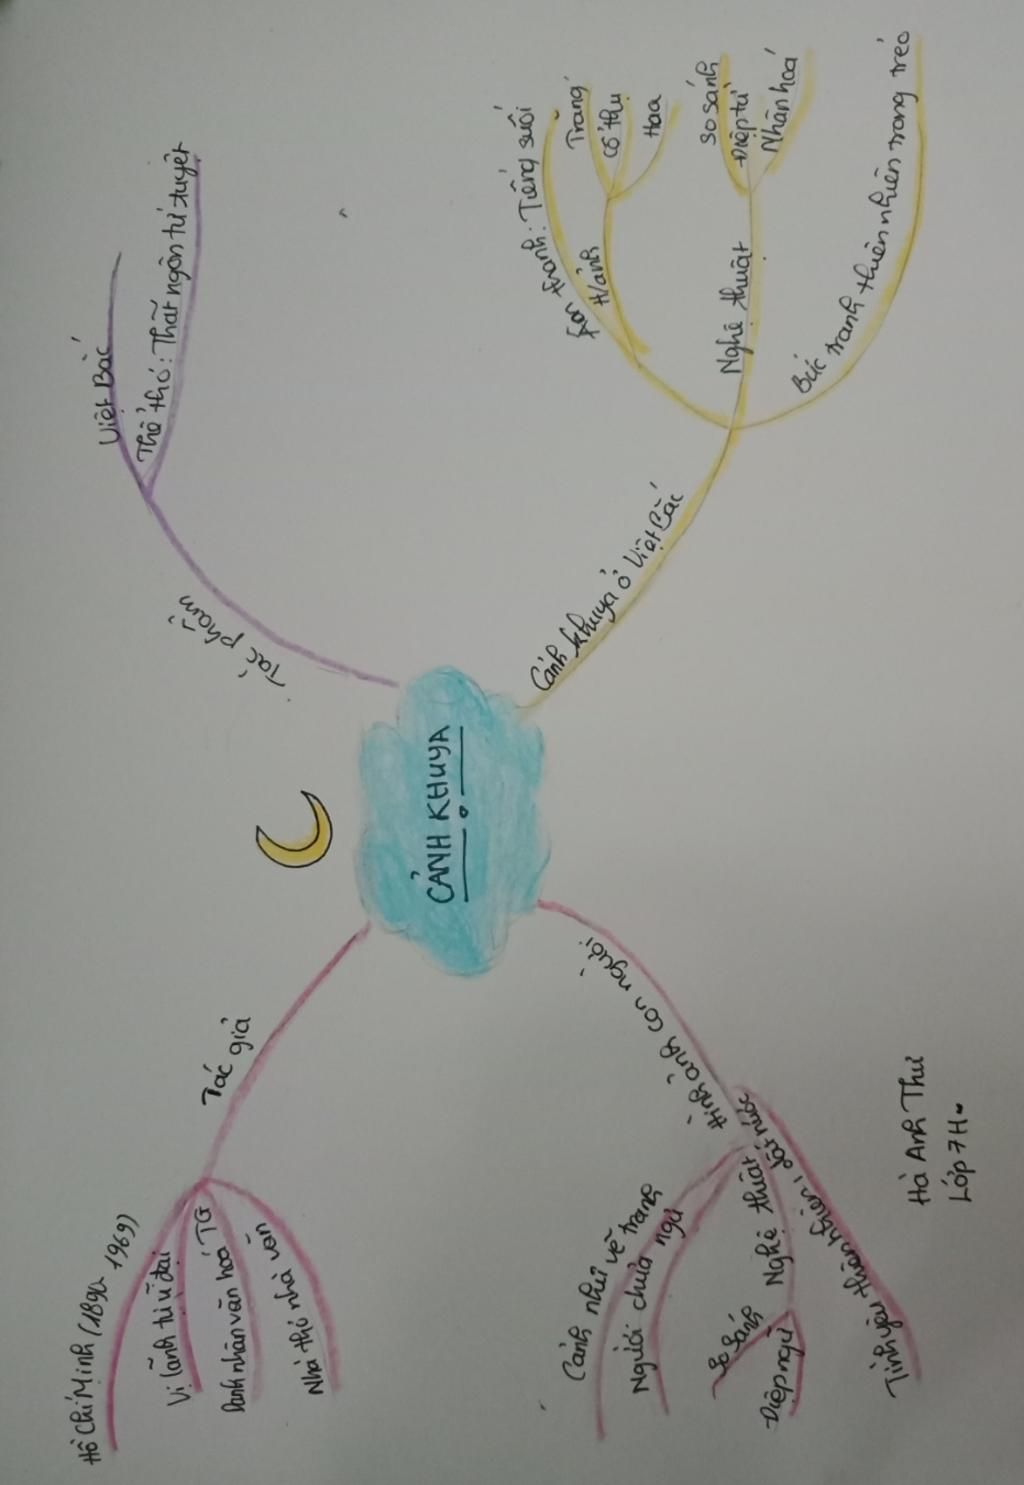 CẢNH KHUYA
Tác giả
Hồ Chí Minh (1890 - 1969)
Vị lãnh tụ vĩ đại
Danh nhân văn hoá TG
Nhà thơ nhà văn
Tác phẩm
Việt Bắc
Thể thơ: Thất ngôn tứ tuyệt
Cảnh khuya ở Việt Bắc
Âm thanh: Tiếng suối
H/ảnh
Trăng
Cổ thụ
Hoa
Nghệ thuật
So sánh
Điệp từ
Nhân hoá
Bức tranh thiên nhiên trong trẻo
Hình ảnh con người
Cảnh như vẽ trăng
Người chưa ngủ
Nghệ thuật
So sánh
Điệp ngữ
Tình yêu thiên nhiên, đất nước
Hà Anh Thư
Lớp 7H